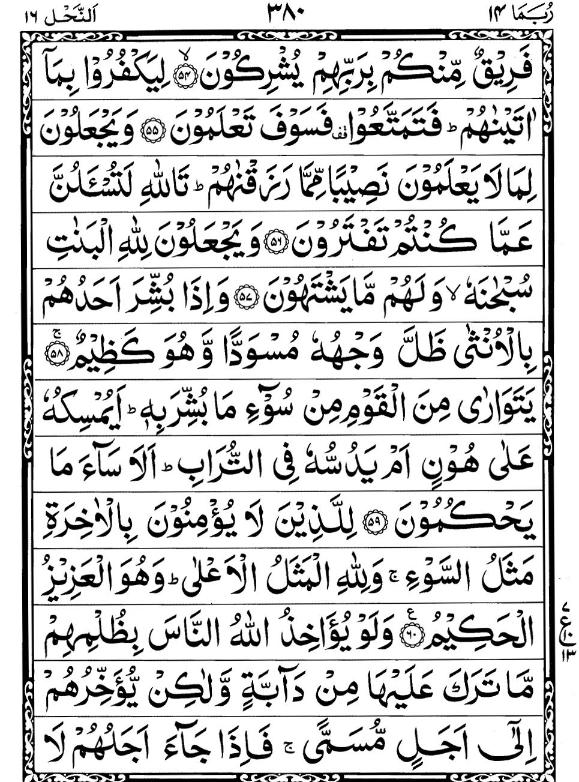 رُبَمَا ١٤ ٣٨٠ اَلنَّحْل ١٦
فَرِيْقٌ مِّنْكُمْ بِرَبِّهِمْ يُشْرِكُوْنَ ۙ﴿۵۴﴾ لِيَكْفُرُوْا بِمَاۤ
اٰتَيْنٰهُمْ ؕ فَتَمَتَّعُوْا ۟ فَسَوْفَ تَعْلَمُوْنَ ﴿۵۵﴾ وَيَجْعَلُوْنَ
لِمَا لَا يَعْلَمُوْنَ نَصِيْبًا مِّمَّا رَزَقْنٰهُمْ ؕ تَاللّٰهِ لَتُسْـَٔلُنَّ
عَمَّا كُنْتُمْ تَفْتَرُوْنَ ﴿۵۶﴾ وَيَجْعَلُوْنَ لِلّٰهِ الْبَنٰتِ
سُبْحٰنَهٗ ۙ وَلَهُمْ مَّا يَشْتَهُوْنَ ﴿۵۷﴾ وَاِذَا بُشِّرَ اَحَدُهُمْ
بِالْاُنْثٰى ظَلَّ وَجْهُهٗ مُسْوَدًّا وَّهُوَ كَظِيْمٌ ۚ﴿۵۸﴾
يَتَوَارٰى مِنَ الْقَوْمِ مِنْ سُوْٓءِ مَا بُشِّرَ بِهٖ ؕ اَيُمْسِكُهٗ
عَلٰى هُوْنٍ اَمْ يَدُسُّهٗ فِى التُّرَابِ ؕ اَلَا سَآءَ مَا
يَحْكُمُوْنَ ﴿۵۹﴾ لِلَّذِيْنَ لَا يُؤْمِنُوْنَ بِالْاٰخِرَةِ
مَثَلُ السَّوْءِ ۚ وَلِلّٰهِ الْمَثَلُ الْاَعْلٰى ؕ وَهُوَ الْعَزِيْزُ
الْحَكِيْمُ ﴿۶۰﴾ ع وَلَوْ يُؤَاخِذُ اللّٰهُ النَّاسَ بِظُلْمِهِمْ
٧ ع ١٣
مَّا تَرَكَ عَلَيْهَا مِنْ دَآبَّةٍ وَّلٰكِنْ يُّؤَخِّرُهُمْ
اِلٰٓى اَجَلٍ مُّسَمًّى ۚ فَاِذَا جَآءَ اَجَلُهُمْ لَا